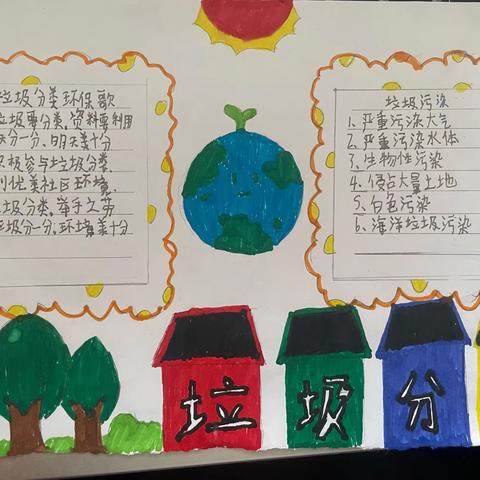 垃圾分类环保歌
垃圾要分类,资料要利用
分一分、明天美十分
积极参与垃圾分类
创优美社区环境
垃圾分类,举手之劳
垃圾分一分、环境美十分
垃圾污染
1、严重污染大气
2、严重污染水体
3、生物性污染
4、侵占大量土地
5、白色污染
6、海洋垃圾污染
垃圾分